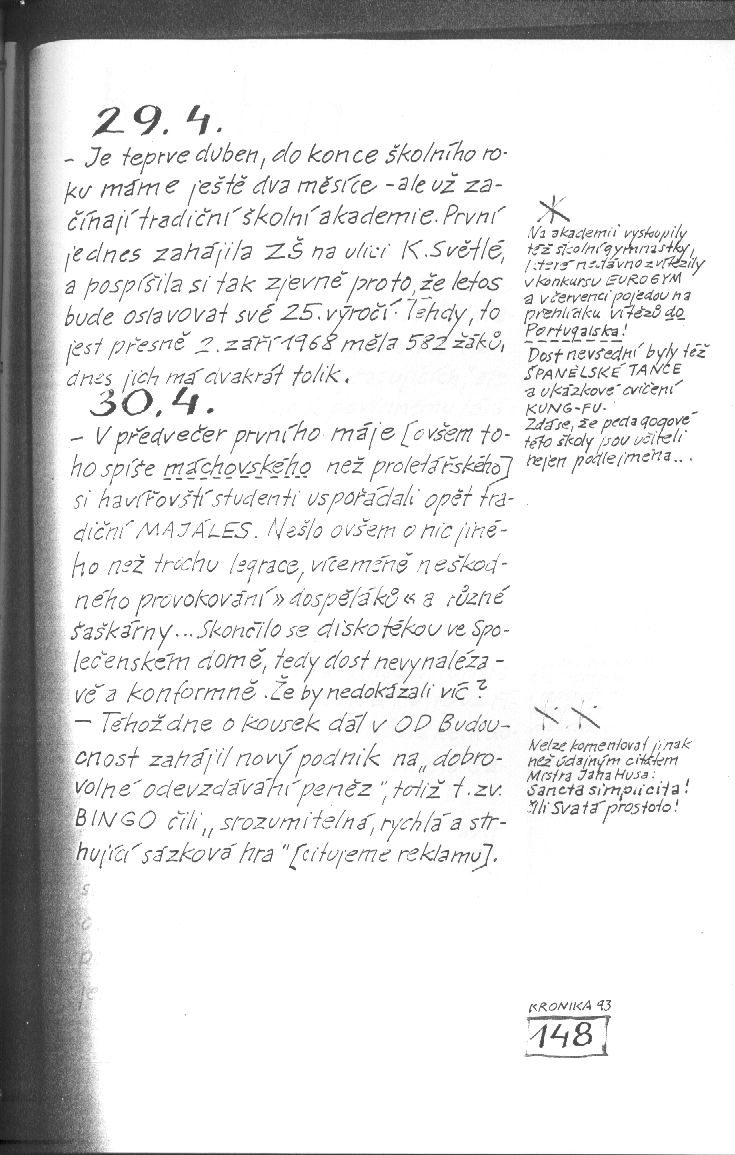 29. 4.
- Je teprve duben, do konce školního ro-
ku máme ještě dva měsíce - ale už za-
čínají tradiční školní akademie. První
jednes zahájila ZŠ na ulici K. Světlé,
a pospíšila si tak zjevně proto, že letos
bude oslavovat své 25. výročí. Tehdy, to
jest přesně 2. září 1968 měla 582 žáků,
dnes jich má dvakrát tolik.
30. 4.
- V předvečer prvního máje [ovšem to-
ho spíše máchovského než proletářského]
si havířovští studenti uspořádali opět tra-
diční MAJÁLES. Nešlo ovšem o nic jiné-
ho než trochu legrace, víceméně neškod-
ného provokování » dospěláků « a různé
šaškárny... Skončilo se diskotékou ve Spo-
lečenském domě, tedy dost nevynaléza-
vě a konformně. Že by nedokázali víc?
- Téhož dne o kousek dál v OD Budou-
cnost zahájil nový podnik na „dobro-
volné odevzdávání peněz", totiž t. zv.
BINGO čili „srozumitelná, rychlá a str-
hující sázková hra" [citujeme reklamu].
Na akademii vystoupily
též školní gymnastky,
které nedávno zvítězily
v konkursu EUROGYM
a v červenci pojedou na
přehlídku vítězů do
Portugalska!
Dost nevšední byly též
ŠPANĚLSKÉ TANCE
a ukázkové cvičení
KUNG-FU.
Zdá se, že pedagogové
této školy jsou učiteli
nejen podle jména...
Nelze komentovat jinak
než údajným citátem
Mistra Jana Husa:
Sancta simplicita!
čili Svatá prostoto!
KRONIKA 93
148